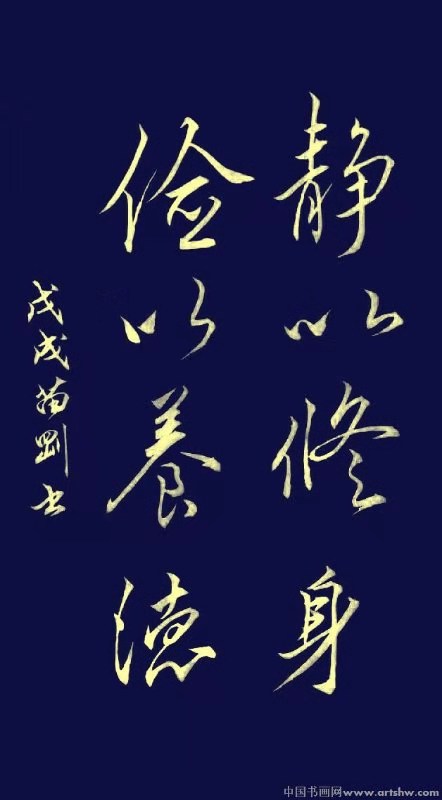 静以修身
儉以養德
戊戌苗剛书
中国书画网www.artshw.com